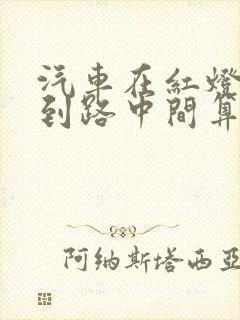 汽車在紅燈
到路中間算
阿纳斯塔西亚